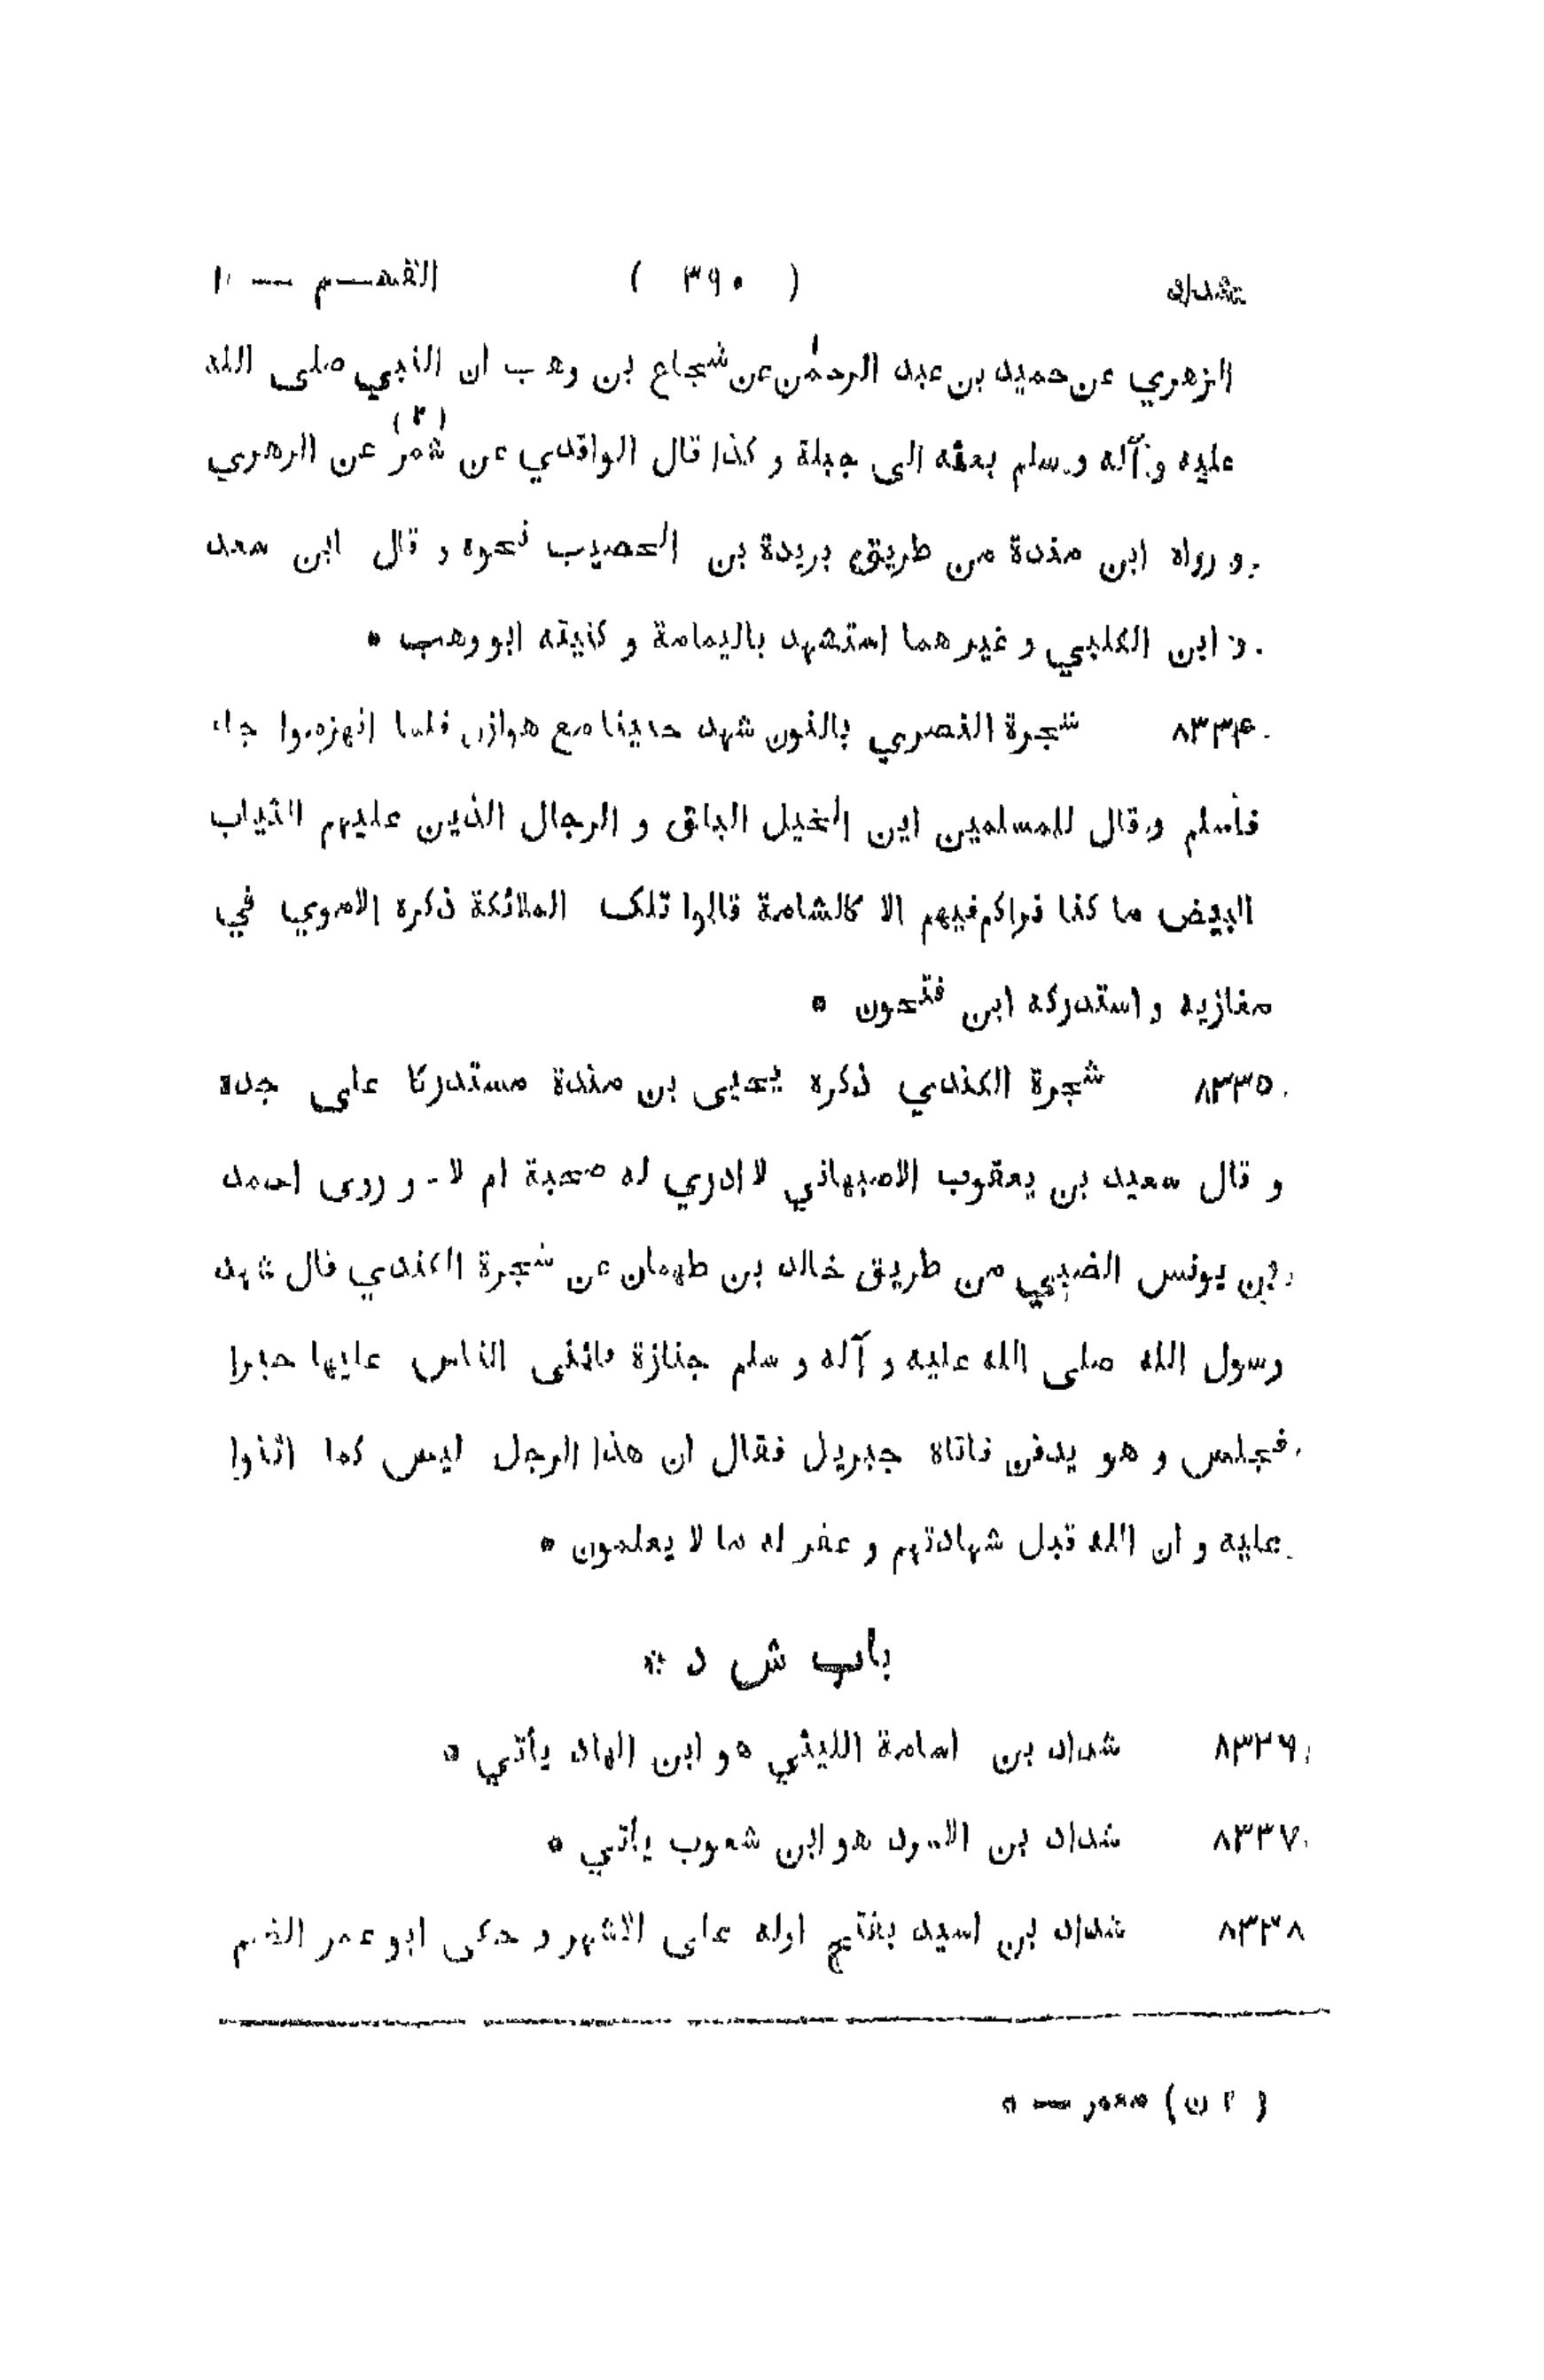 شداد ( ٣٩٠ ) القسم — ١
الزهري عن حميد بن عبد الرحمٰن عن شجاع بن وهب ان النبي صلى الله
عليه و آله و سلم بعثه الى جبلة و كذا قال الواقدي عن شمر (٢) عن الزهري
و رواه ابن مندة من طريق بريدة بن الحصيب نحوه و قال ابن سعد
و ابن الكلبي و غيرهما استشهد باليمامة و كنيته ابو وهب *
٨٣٣۴ شجرة النصري بالنون شهد حنينا مع هوازن فلما انهزموا جاء
فأسلم و قال للمسلمين اين الخيل البلق و الرجال الذين عليهم الثياب
البيض ما كنا نراكم فيهم الا كالشامة قالوا تلك الملائكة ذكره الاموي في
مغازيه و استدركه ابن فتحون *
٨٣٣٥ شجرة الكندي ذكره يحيى بن مندة مستدركا على جده
و قال سعيد بن يعقوب الاصبهاني لا ادري له صحبة ام لا - و روى احمد
بن يونس الضبي من طريق خالد بن طهمان عن شجرة الكندي قال شهد
رسول الله صلى الله عليه و آله و سلم جنازة فاثنى الناس عليها خيرا
فجلس و هو يدفن فاتاه جبريل فقال ان هذا الرجل ليس كما اثنوا
عليه و ان الله قبل شهادتهم و غفر له ما لا يعلمون *
باب ش د *
٨٣٣٦ شداد بن امامة الليثي هو ابن الهاد يأتي *
٨٣٣٧ شداد بن الاسود هو ابن شعوب يأتي *
٨٣٣٨ شداد بن اسيد بفتح اوله على الاشهر و حكى ابو عمر الضم
( ٢ ن ) معمر — *